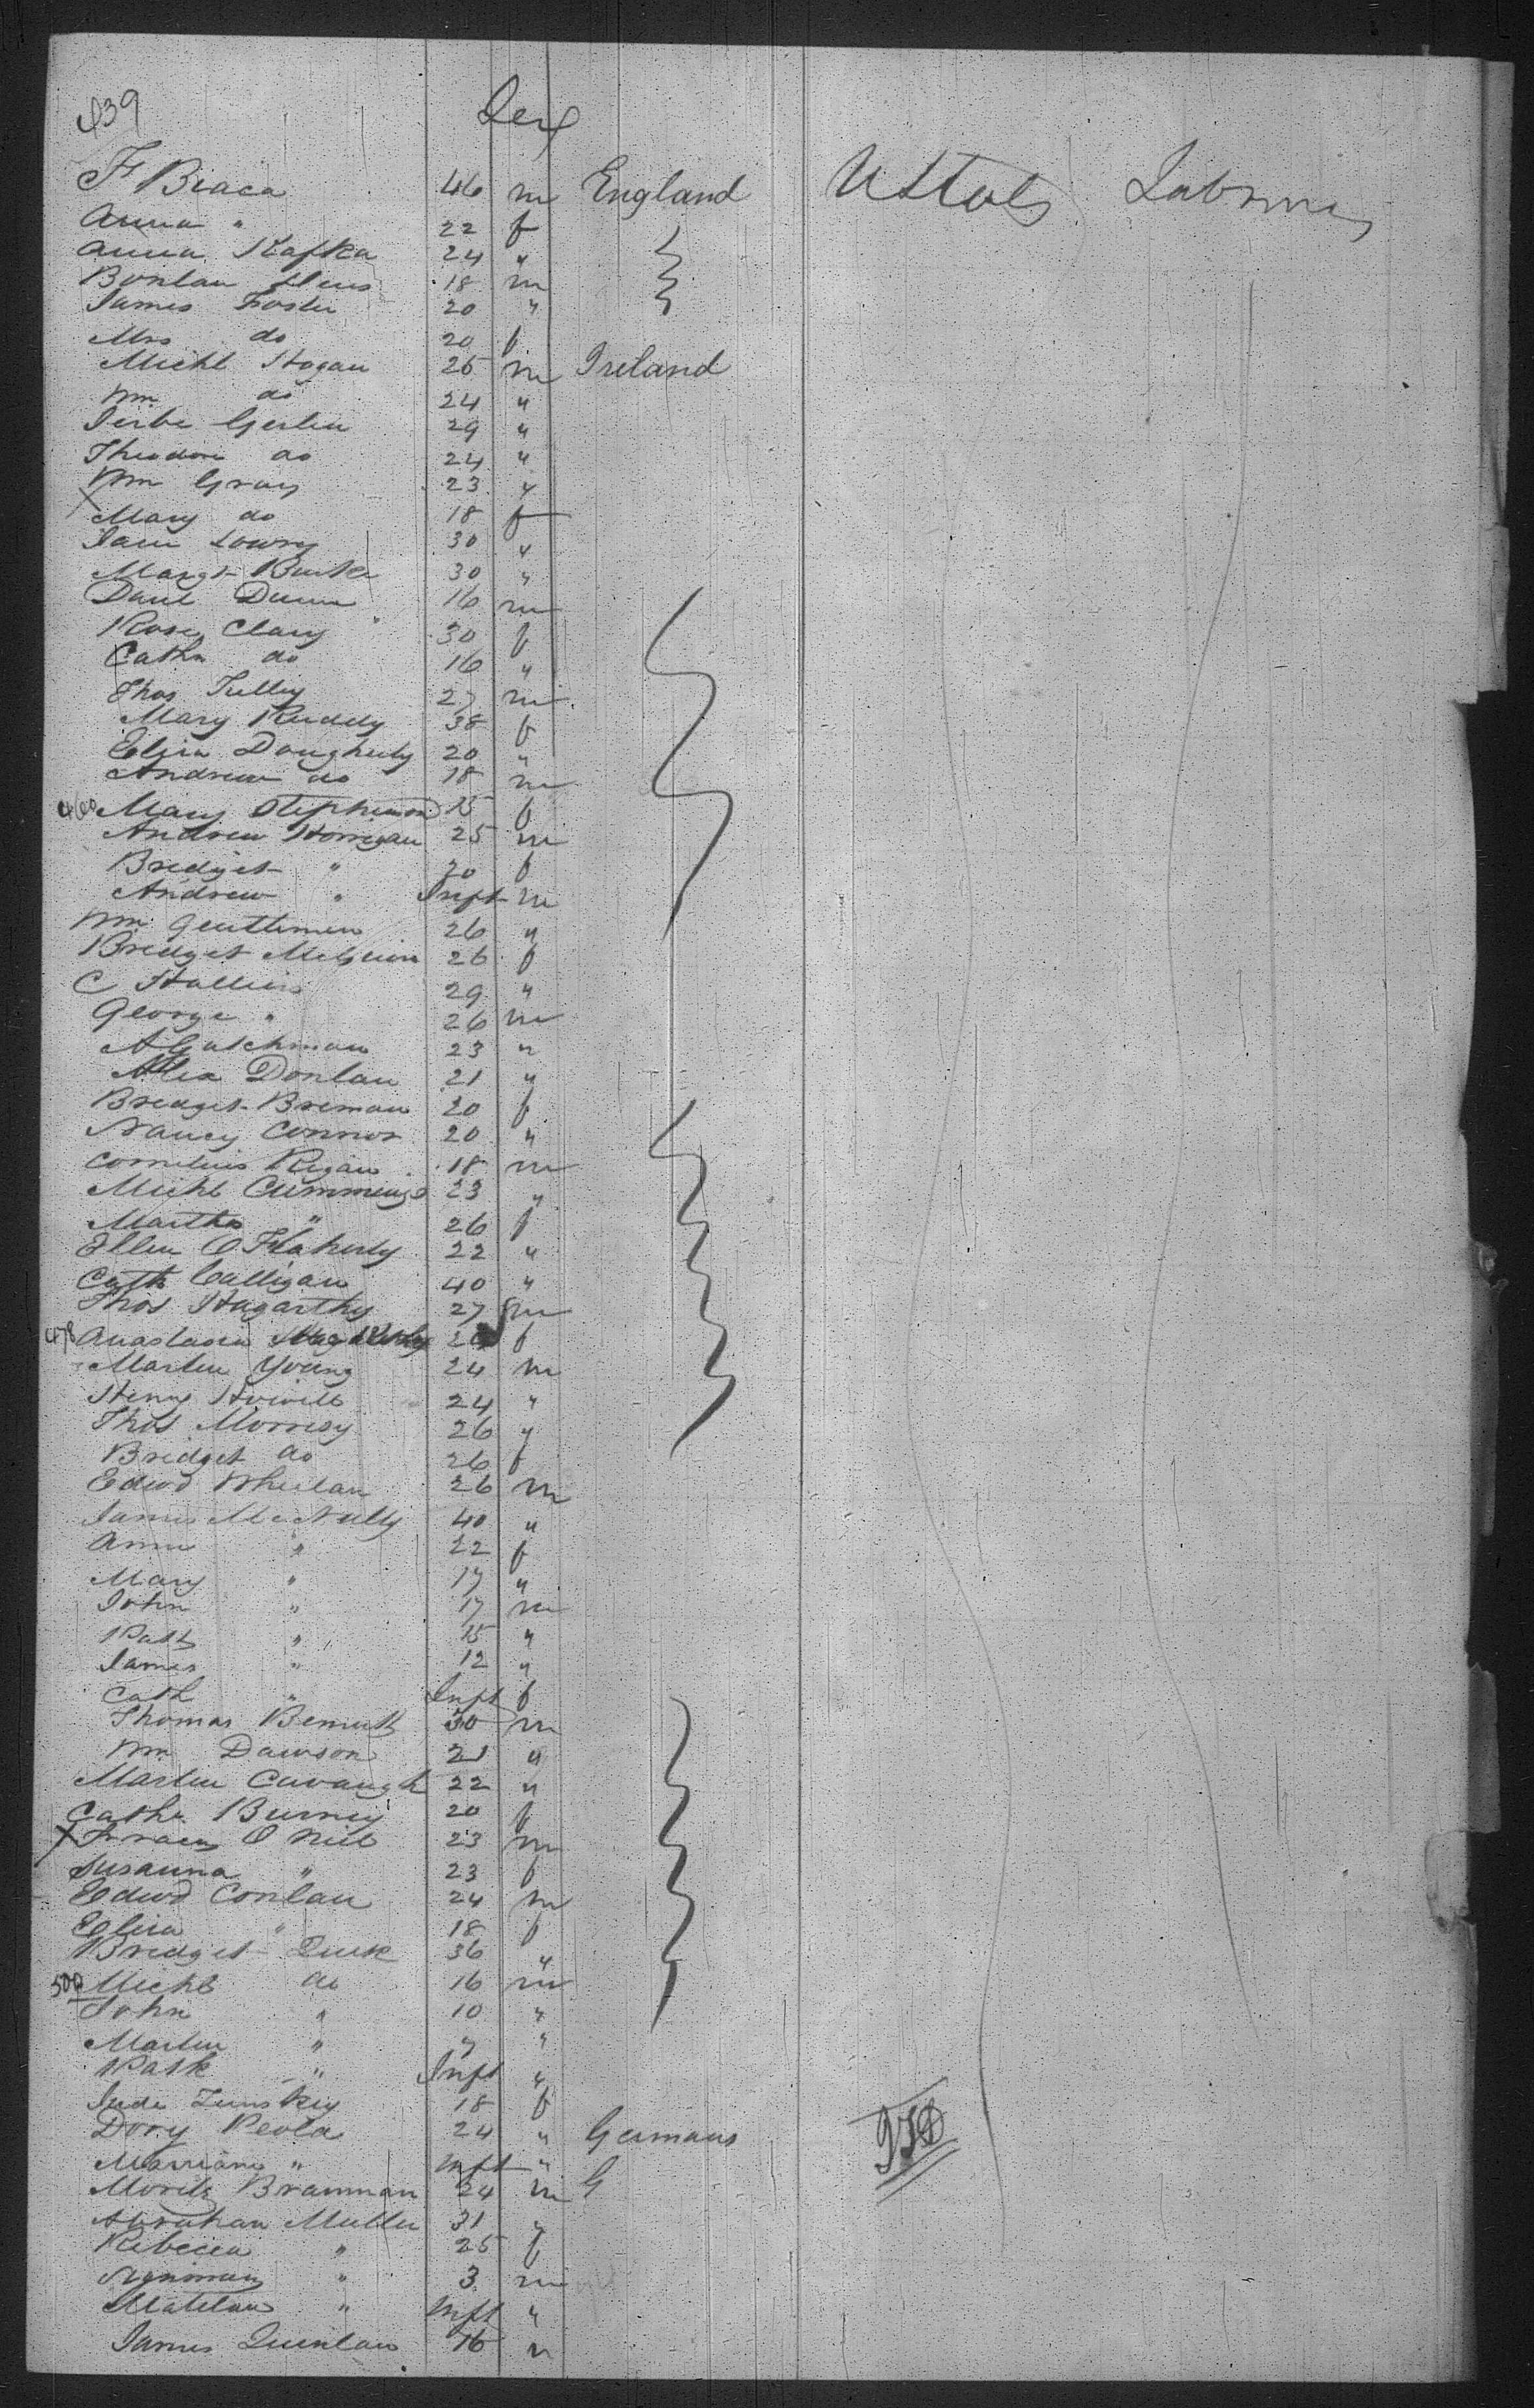 439 Sex
F Braca 46 m England U States Labourer
Anna " 22 f
Anna Kafka 24 "
18 m
James Foster 20 "
Mrs do 20 f
Michl Hogan 25 m Ireland
Wm do 24 "
Gerlin 29 "
Theodore do 24 "
Wm Gray 23 "
Mary do 18 f
Jane Lowry 30 "
Margt Burke 30 "
Danl Dunn 16 m
Rose Clary 30 f
Cathn do 16 "
Thos Tully 27 m
Mary Ruddy 38 f
Eliza Dougherty 20 "
Andrew do 18 m
460 Mary Stephenson 15 f
Andrew Horrigan 25 m
Bridget " 20 f
Andrew " Inft m
Wm Gentlemen 26 "
Bridget McGuire 26 f
C Hallins 29 "
George " 26 m
A Gutchman 23 "
Alex Donlan 21 "
Bridget Brennan 20 f
Nancy Connor 20 "
Cornelius Regan 18 m
Michl Cummings 23 "
Martha " 26 f
Ellen O Flaherty 22 "
Cath Calligan 40 "
Thos Hagarthy 27 m
478 Anastasia f
Martin Young 24 m
Henry 24 "
Thos Morresy 26 "
Bridget do 26 f
Edwd Whelan 26 m
James McNally 40 "
Ann " 22 f
Mary " 17 "
John " 17 m
Patk " 15 "
James " 12 "
Cath " Inft f
Thomas Bennett 30 m
Wm Dawson 21 "
Martin Cavanagh 22 "
Cathe Burney 20 f
X Francis O Neil 23 m
Susanna " 23 f
Edwd Conlan 24 m
Eliza " 18 f
Bridget Quirk 36 "
500 Michl do 16 m
John " 10 "
Martin " 7 "
Patk " Inft "
18 f
Dory Peola 24 " Germans
" Inft " G
Moritz Bramman 24 m
Abraham Muller 31 "
Rebecca " 25 f
" 3 m
" Inft "
James Quinlan 16 "